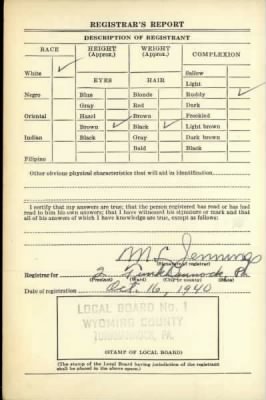 REGISTRAR'S REPORT
DESCRIPTION OF REGISTRANT
RACE HEIGHT (Approx.) WEIGHT (Approx.) COMPLEXION
White ✓ Sallow
Light
EYES HAIR
Negro Blue Blonde Ruddy ✓
Gray Red Dark
Oriental Hazel Brown Freckled
Brown ✓ Black ✓ Light brown
Indian Black Gray Dark brown
Bald Black
Filipino
Other obvious physical characteristics that will aid in identification
I certify that my answers are true; that the person registered has read or has had
read to him his own answers; that I have witnessed his signature or mark and that
all of his answers of which I have knowledge are true, except as follows:
M C Jennings
(Signature of registrar)
Registrar for 2 Tunkhannock, Pa
(Precinct) (Ward) (City or county) (State)
Date of registration Oct. 16, 1940
LOCAL BOARD No. 1
WYOMING COUNTY
TUNKHANNOCK, PA.
(STAMP OF LOCAL BOARD)
(The stamp of the Local Board having jurisdiction of the registrant
shall be placed in the above space.)